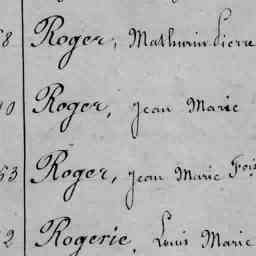 8 Roger, Mathurin Pierre
0 Roger, Jean Marie
53 Roger, Jean Marie Fois
2 Rogerie, Louis Marie